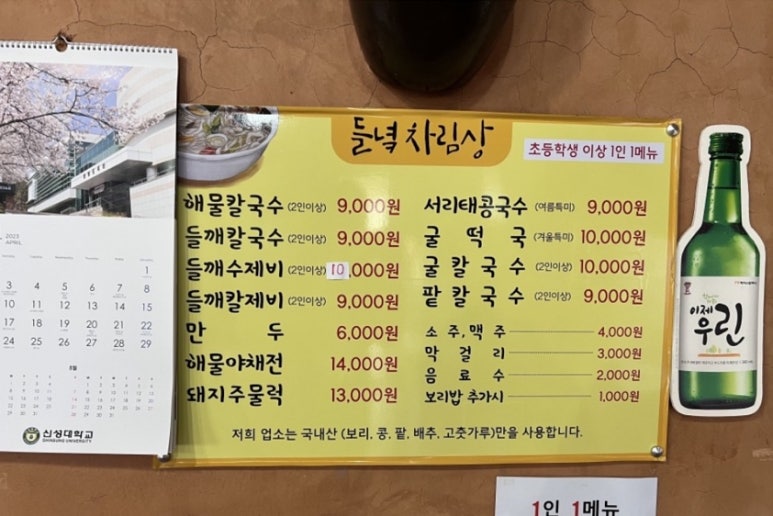 2023
APRIL
1
3 4 5 6 7 8
10 11 12 13 14 15
17 18 19 20 21 22
24 25 26 27 28 29
5월
신성대학교
SHINSUNG UNIVERSITY
들녘 차림상
초등학생 이상 1인 1메뉴
해물칼국수 (2인이상) 9,000원
들깨칼국수 (2인이상) 9,000원
들깨수제비 (2인이상) 10,000원
들깨칼제비 (2인이상) 9,000원
만두 6,000원
해물야채전 14,000원
돼지주물럭 13,000원
서리태콩국수 (여름특미) 9,000원
굴떡국 (겨울특미) 10,000원
굴칼국수 (2인이상) 10,000원
팥칼국수 (2인이상) 9,000원
소주,맥주 4,000원
막걸리 3,000원
음료수 2,000원
보리밥 추가시 1,000원
저희 업소는 국내산 (보리, 콩, 팥, 배추, 고춧가루)만을 사용합니다.
이제
우린
1인 1메뉴